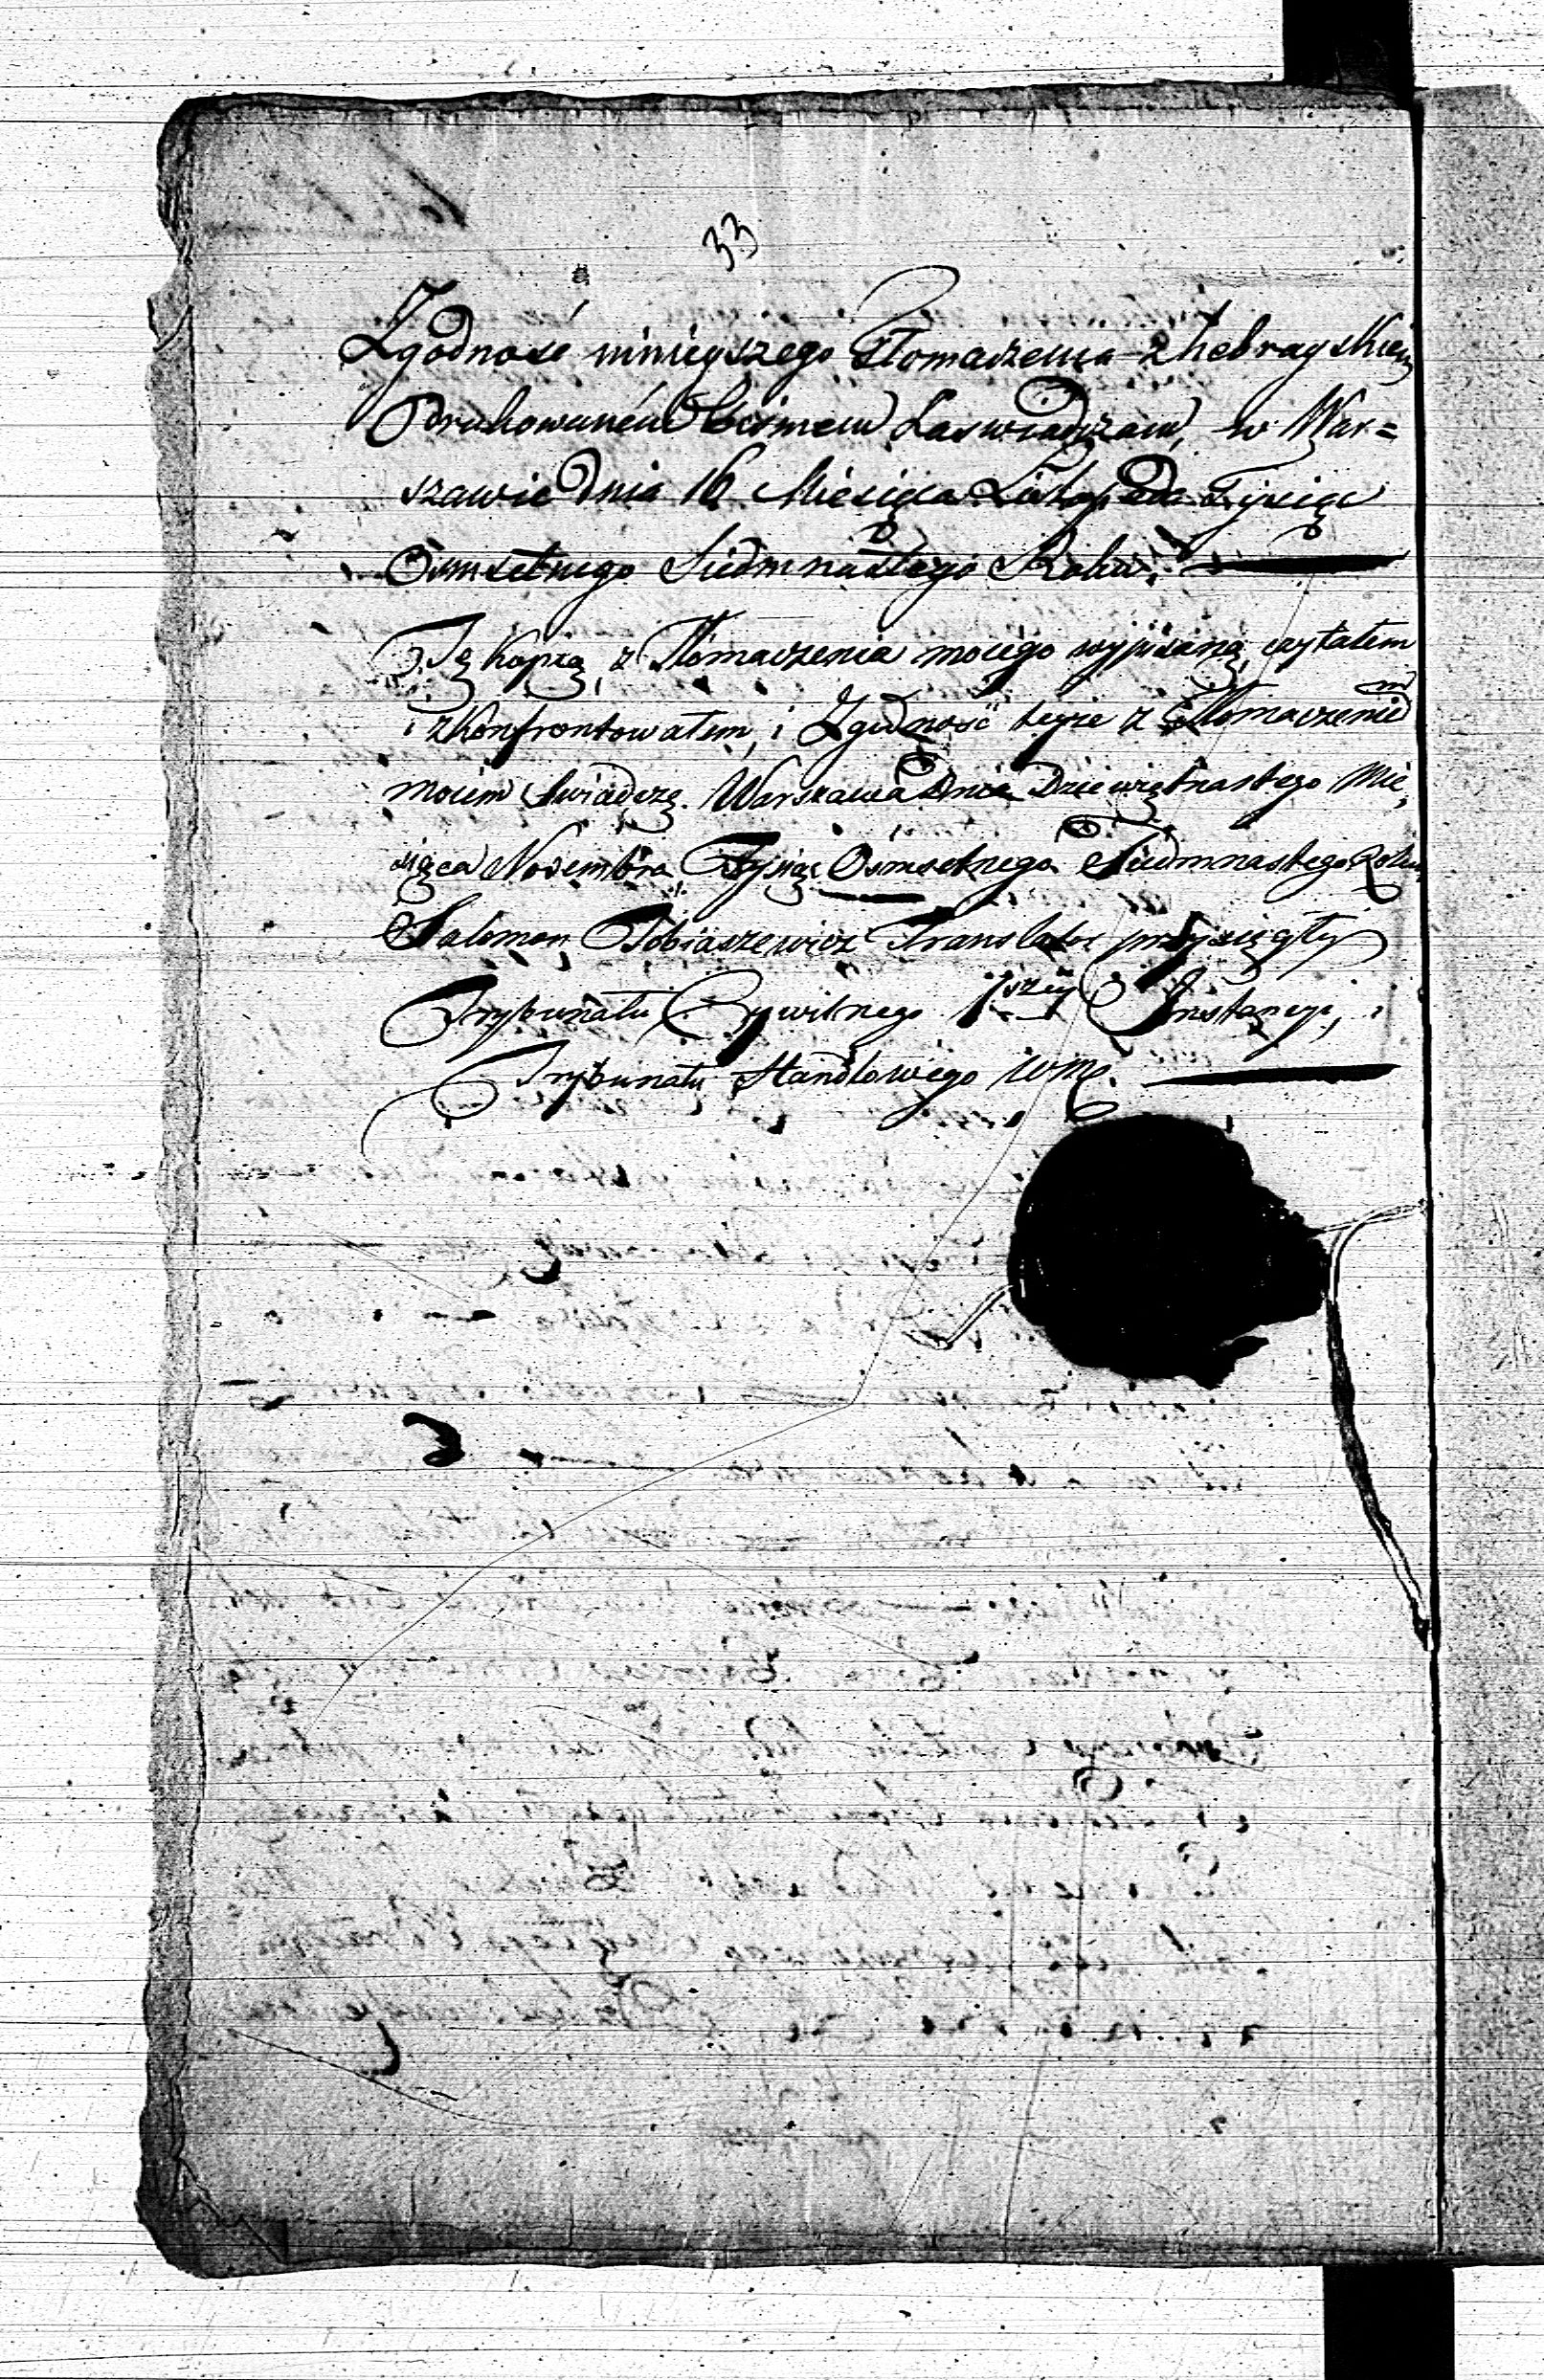 33
Zgodność ninieyszego Tłomaczenia z hebrayskiem
Drukowaném Pismem Zaświadczam, w War=
szawie Dnia 16 Miesiąca Listopada Tysiąc
Osmsetnego Siedmnastego Roku.
Tę kopią z Tłómaczenia moiego wypisaną czytałem
i zkonfrontowałem, i Zgodność teyże z Tłomaczeniem
moiém świadczę. Warszawa Dnia Dziewiętnastego Mie,
siąca Novembra Tysiąc Osmsetnego Siedmnastego Roku.
Salomon Tobiaszewicz Translator przysięgły
Trybunału Cywilnego 1szey Instancyi, i
Trybunału Handlowego